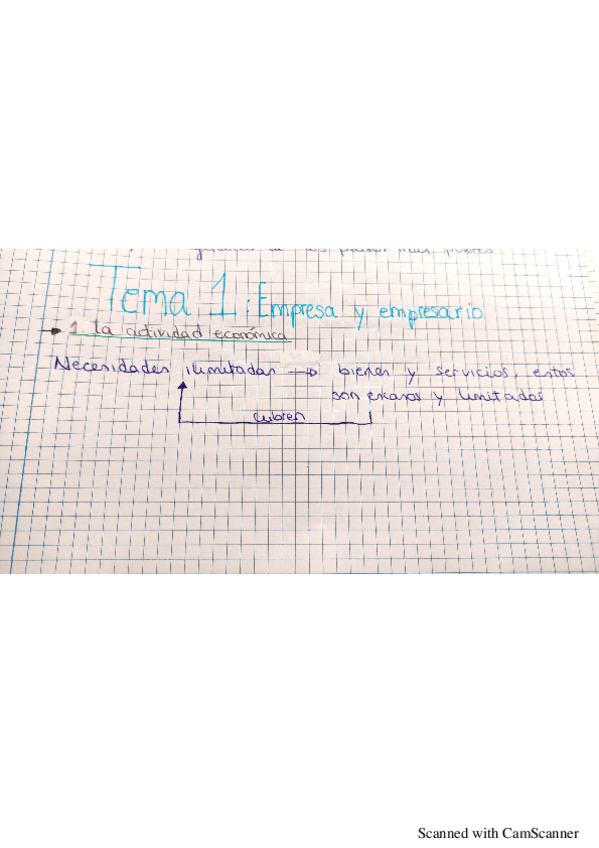 Tema 1: Empresa y empresario
1. la actividad económica
Necesidades ilimitadas → bienes y servicios, estos
son escasos y limitados
cubren
Scanned with CamScanner